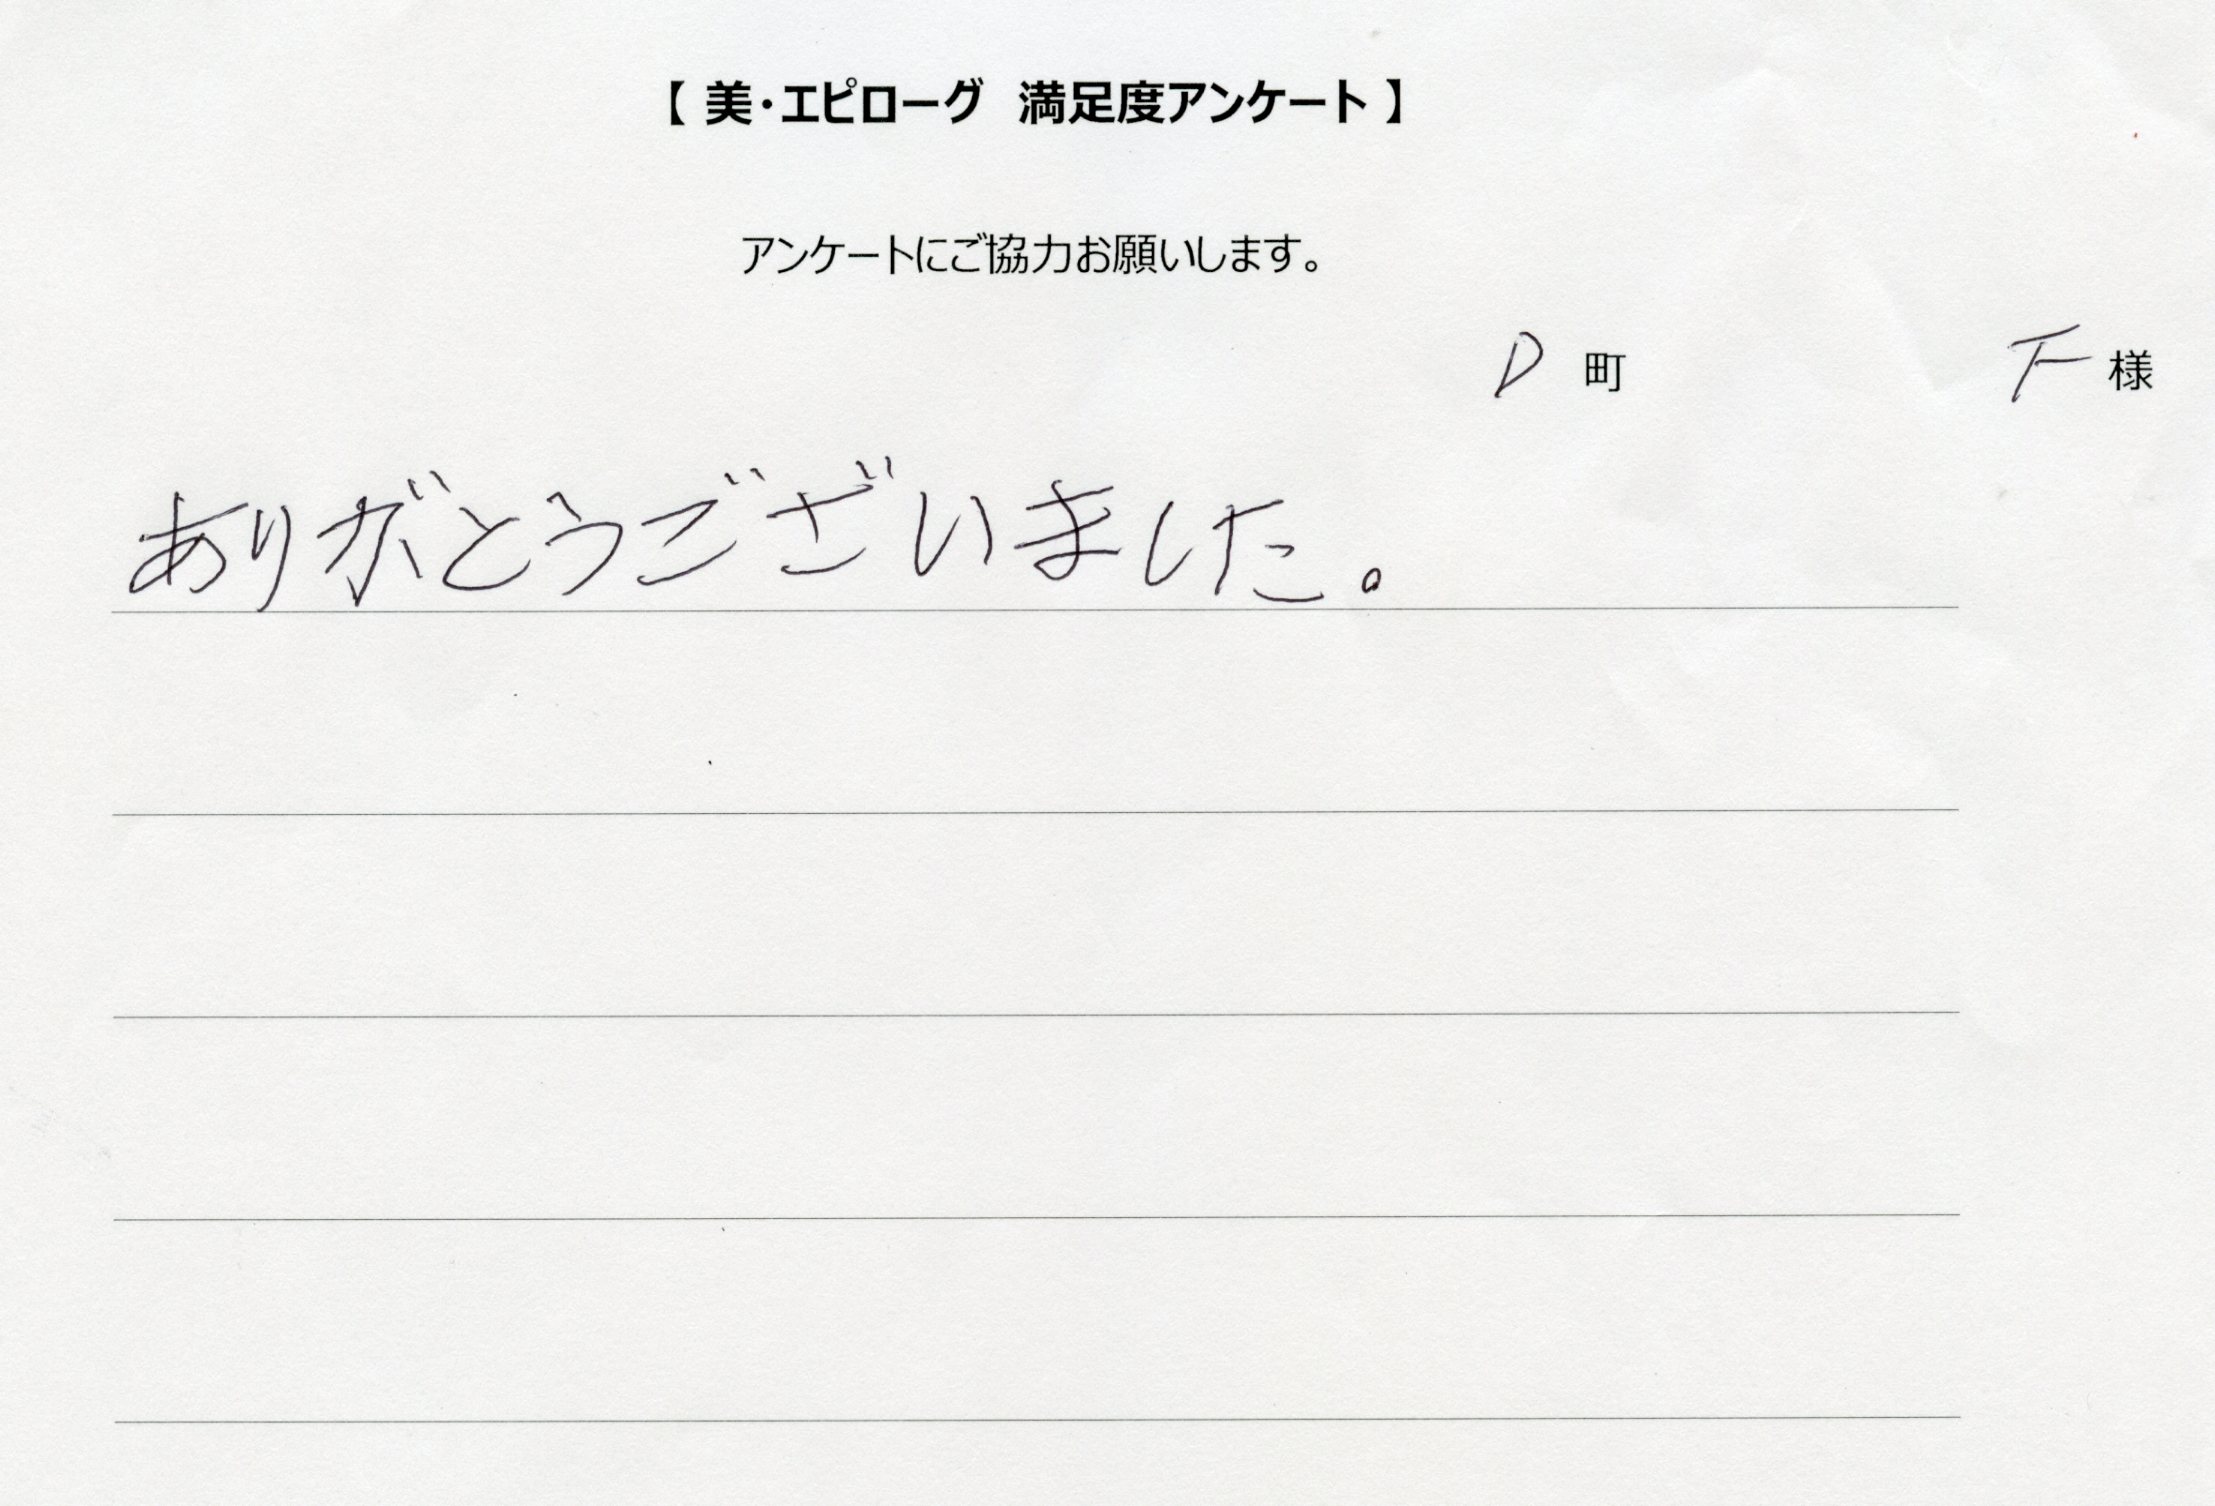 【 美・エピローグ 満足度アンケート 】
アンケートにご協力お願いします。
D 町 F 様
ありがとうございました。